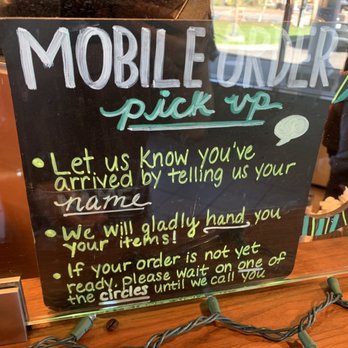 MOBILE ORDER
pick up
• Let us know you've
arrived by telling us your
name
• We will gladly hand you
your items!
• If your order is not yet
ready, please wait on one of
the circles until we call you